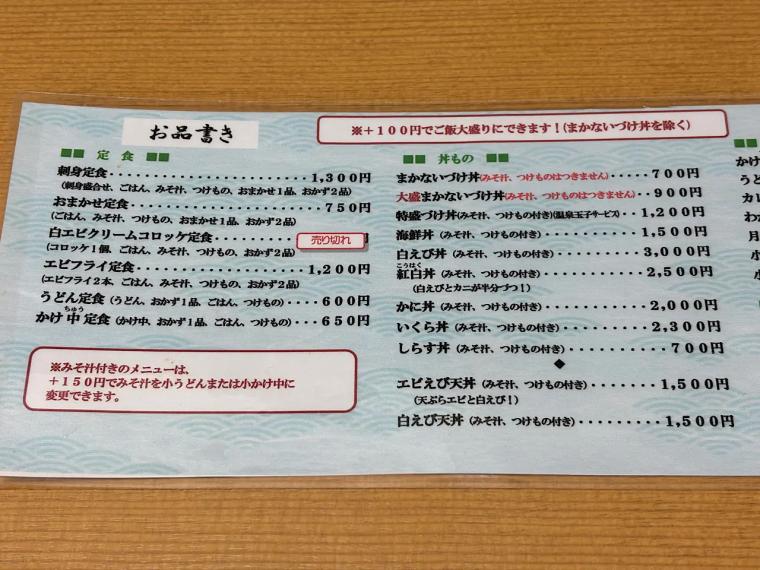 お品書き
※＋１００円でご飯大盛りにできます！(まかないづけ丼を除く)
定 食
刺身定食・・・・・・・・・・・・・・・・・・・・・・1,300円
(刺身盛合せ、ごはん、みそ汁、つけもの、おまかせ１品、おかず２品)
おまかせ定食・・・・・・・・・・・・・・・・・・・・750円
(ごはん、みそ汁、つけもの、おまかせ１品、おかず２品)
白エビクリームコロッケ定食・・・・・・・・・ 売り切れ 円
(コロッケ１個、ごはん、みそ汁、つけもの、おかず２品)
エビフライ定食・・・・・・・・・・・・・・・・・・1,200円
(エビフライ２本、ごはん、みそ汁、つけもの、おかず２品)
うどん定食 (うどん、おかず１品、ごはん、つけもの)・・・・600円
ちゅう
かけ 中 定食 (かけ中、おかず１品、ごはん、つけもの)・・・650円
※みそ汁付きのメニューは、
＋１５０円でみそ汁を小うどんまたは小かけ中に
変更できます。
丼もの
まかないづけ丼(みそ汁、つけものはつきません)・・・・・700円
大盛まかないづけ丼(みそ汁、つけものはつきません)・・900円
特盛づけ丼(みそ汁、つけもの付き)(温泉玉子サービス)・・1,200円
海鮮丼 (みそ汁、つけもの付き)・・・・・・・・・・1,500円
白えび丼 (みそ汁、つけもの付き)・・・・・・・・・3,000円
こうはく
紅白丼 (みそ汁、つけもの付き)・・・・・・・・・・2,500円
(白えびとカニが半分づつ！)
かに丼 (みそ汁、つけもの付き)・・・・・・・・・・2,000円
いくら丼 (みそ汁、つけもの付き)・・・・・・・・・2,300円
しらす丼 (みそ汁、つけもの付き)・・・・・・・・・・700円
◆
エビえび天丼 (みそ汁、つけもの付き)・・・・・・・1,500円
(天ぷらエビと白えび！)
白えび天丼 (みそ汁、つけもの付き)・・・・・・・・・1,500円
かけ
うど
カレ
わか
月